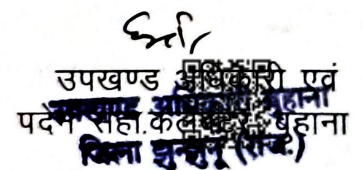 उपखण्ड अधिकारी एवं
उपखण्ड अधिकारी बुहाना
पदेन सहा.कलक्टर, बुहाना
जिला झुन्झुनू (राज.)